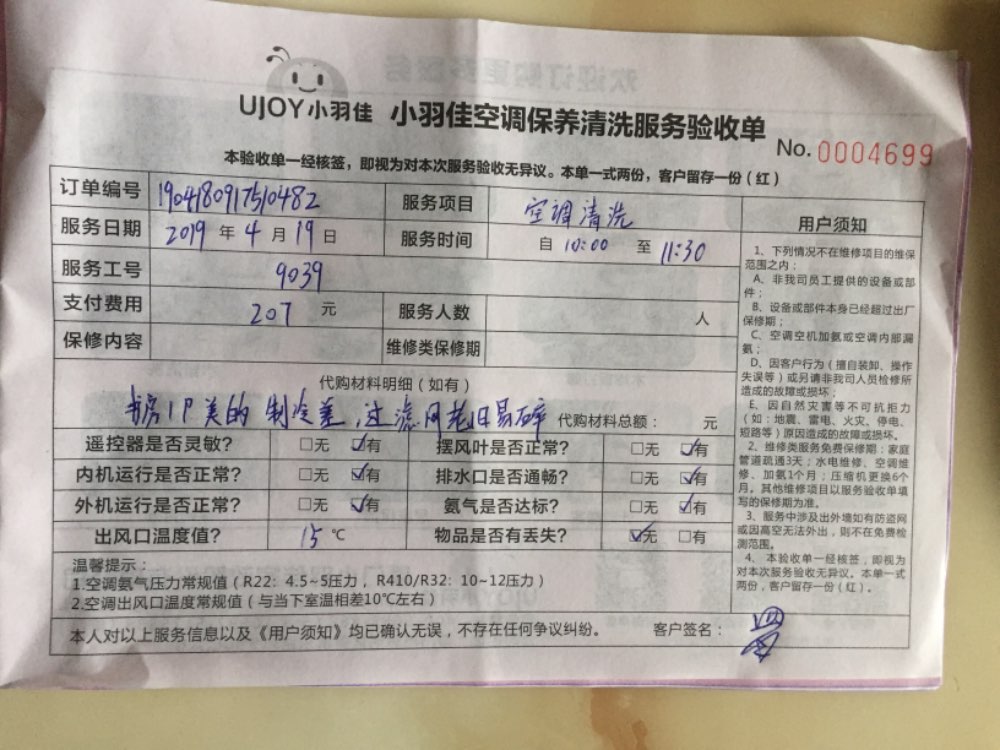 UJOY小羽佳 小羽佳空调保养清洗服务验收单
No. 0004699
本验收单一经核签，即视为对本次服务验收无异议。本单一式两份，客户留存一份（红）
订单编号 1904180917510482 服务项目 空调清洗
服务日期 2019 年 4 月 19 日 服务时间 自 10:00 至 11:30
服务工号 9039
支付费用 207 元 服务人数 人
保修内容 维修类保修期
代购材料明细（如有）
书房1P美的 制冷差，过滤网老旧易碎 代购材料总额： 元
遥控器是否灵敏？ □无 ☑有 摆风叶是否正常？ □无 ☑有
内机运行是否正常？ □无 ☑有 排水口是否通畅？ □无 ☑有
外机运行是否正常？ □无 ☑有 氨气是否达标？ □无 ☑有
出风口温度值？ 15 ℃ 物品是否有丢失？ ☑无 □有
温馨提示：
1.空调氨气压力常规值（R22：4.5~5压力，R410/R32：10~12压力）
2.空调出风口温度常规值（与当下室温相差10℃左右）
本人对以上服务信息以及《用户须知》均已确认无误，不存在任何争议纠纷。 客户签名：
用户须知
1、下列情况不在维修项目的维保
范围之内：
A、非我司员工提供的设备或部
件；
B、设备或部件本身已经超过出厂
保修期；
C、空调空机加氨或空调内部漏
氨；
D、因客户行为（擅自装卸、操作
失误等）或另请非我司人员检修所
造成的故障或损坏；
E、因自然灾害等不可抗拒力
（如：地震、雷电、火灾、停电、
短路等）原因造成的故障或损坏。
2、维修类服务免费保修期：家庭
管道疏通3天；水电维修、空调维
修、加氨1个月；压缩机更换6个
月。其他维修项目以服务验收单填
写的保修期为准。
3、服务中涉及出外墙如有防盗网
或因高空无法外出，则不在免费检
测范围。
4、本验收单一经核签，即视为
对本次服务验收无异议。本单一式
两份，客户留存一份（红）。